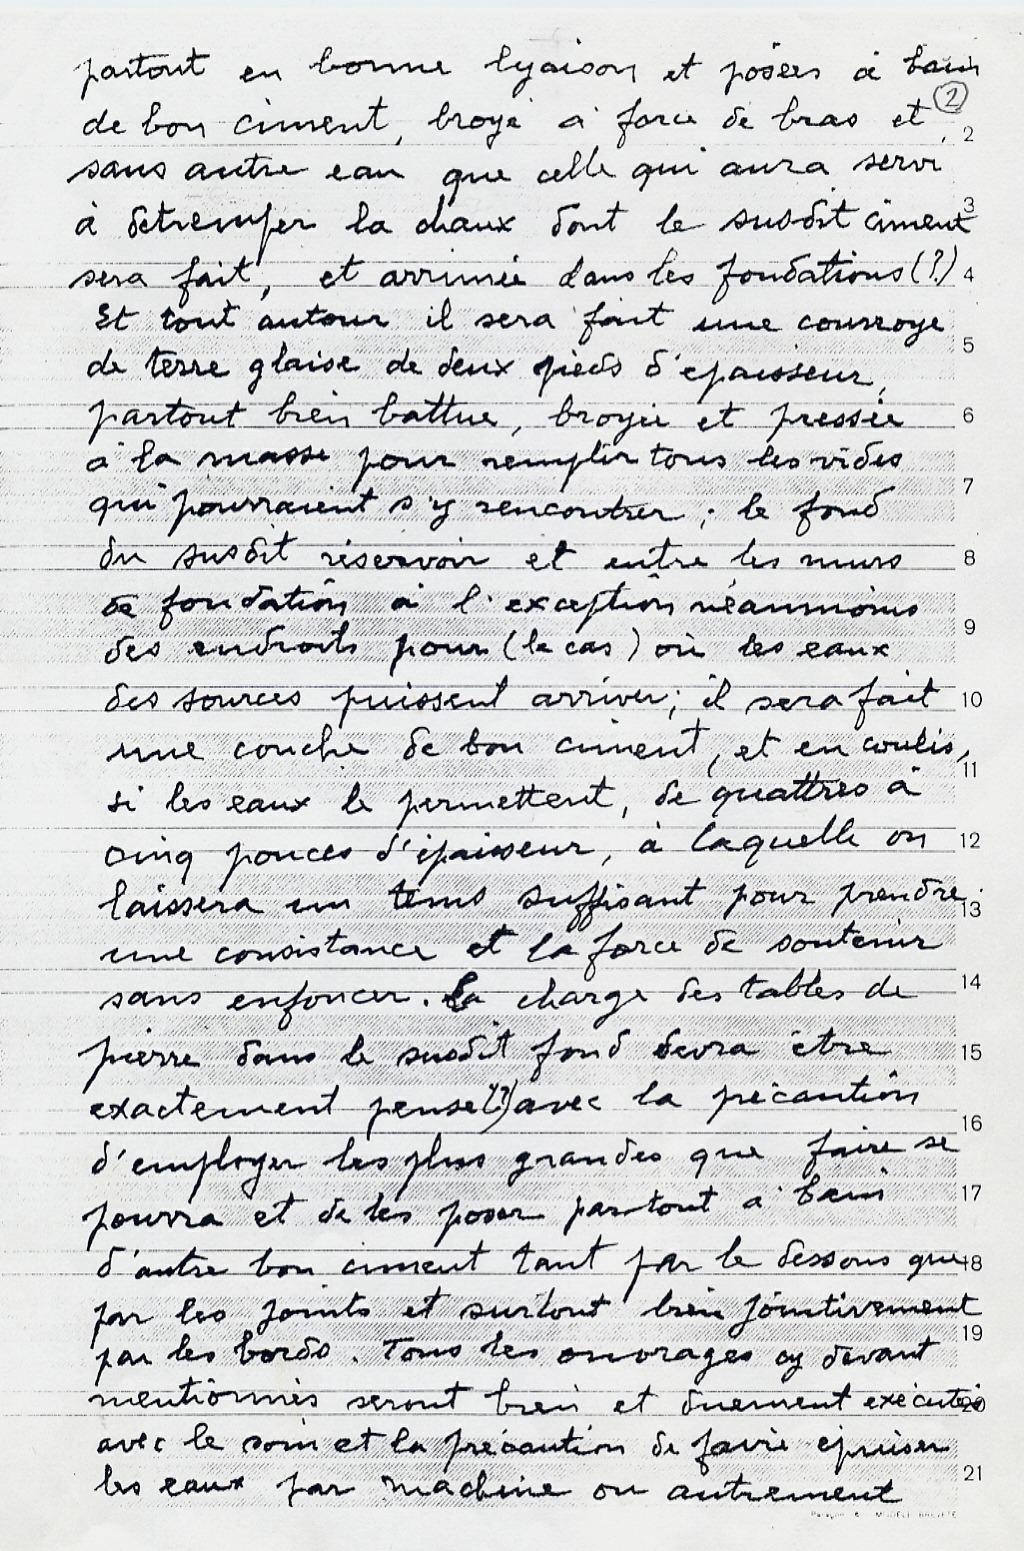 partout en bonne lyaison et posées à bain
②
de bon ciment, broyé à force de bras et
2
sans autre eau que celle qui aura servi
3
à detremper la chaux dont le susdit ciment
sera fait, et arrimée dans les fondations (?)
4
Et tout autour il sera fait une courroye
5
de terre glaise de deux pieds d'épaisseur,
partout bien battue, broyée et pressée
6
à la masse pour remplir tous les vides
7
qui pourraient s'y rencontrer ; le fond
du susdit réservoir et entre les murs
8
de fondation à l'exception néanmoins
9
des endroits pour (le cas) où les eaux
des sources puissent arriver ; il sera fait
10
une couche de bon ciment, et en coulis,
11
si les eaux le permettent, de quattres à
cinq pouces d'épaisseur, à laquelle on
12
laissera un tems suffisant pour prendre
13
une consistance et la force de soutenir
sans enfoncer. La charge des tables de
14
pierre dans le susdit fond devra être
15
exactement pensé (?) avec la précaution
16
d'employer les plus grandes que faire se
pourra et de les poser partout à bain
17
d'autre bon ciment tant par le dessous que
18
par les joints et surtout bien jointivement
19
par les bords. Tous les ouvrages cy devant
mentionnés seront bien et duement exécutés
20
avec le soin et la précaution de faire epuiser
les eaux par machine ou autrement
21